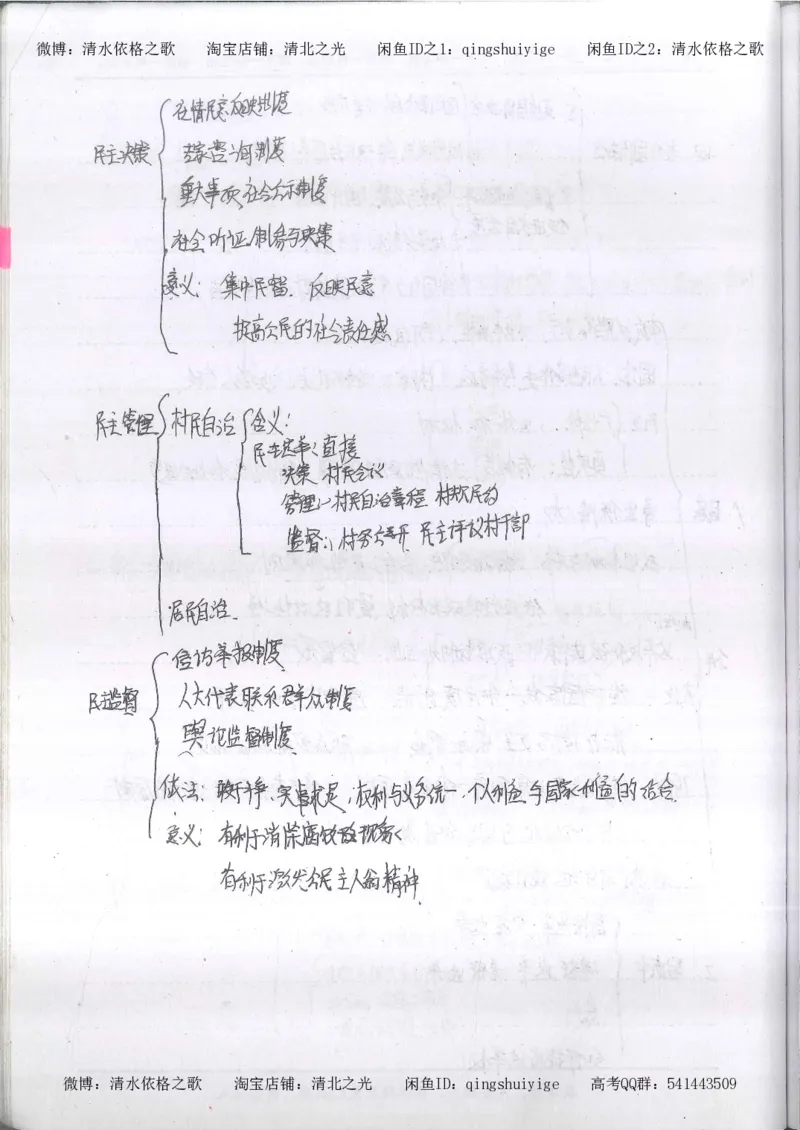 微博：清水依格之歌 淘宝店铺：清北之光 闲鱼ID之1：qingshuiyige 闲鱼ID之2：清水依格之歌
社情民意反映制度
民主决策 专家咨询制度
重大事项社会公示制度
社会听证制度与决策
意义：集中民智、反映民意
提高公民的社会责任感
民主管理 村民自治 含义：
民主选举：直接
决策 村民会议
管理：村民自治章程 村规民约
监督：村务公开 民主评议村干部
居民自治
信访举报制度
民主监督 人大代表联系群众制度
舆论监督制度
依法、敢于斗争、实事求是，权利与义务统一，个人利益与国家利益的结合
意义：有利于消除腐败现象
有利于激发公民主人翁精神
微博：清水依格之歌 淘宝店铺：清北之光 闲鱼ID：qingshuiyige 高考QQ群：541443509